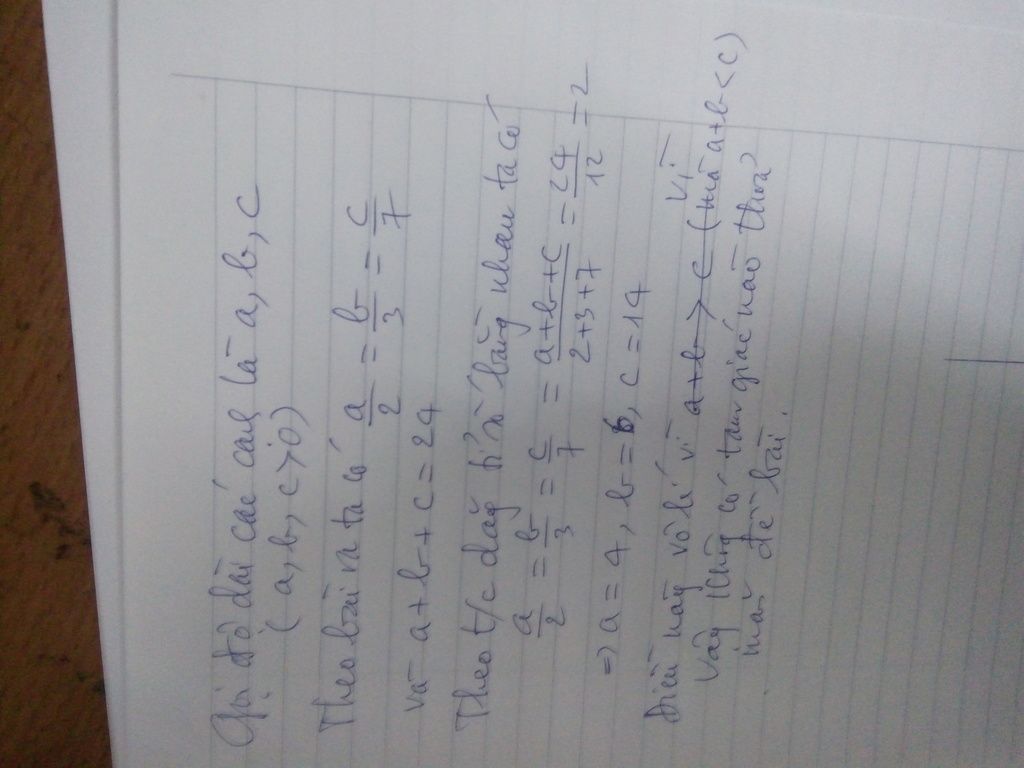 Gọi độ dài các cạnh là a, b, c
( a, b, c > 0)
Theo bài ra ta có a/2 = b/3 = c/7
và a + b + c = 24
Theo t/c dãy tỉ số bằng nhau ta có
a/2 = b/3 = c/7 = a+b+c/2+3+7 = 24/12 = 2
=> a = 4, b = 6, c = 14
Điều này vô lí vì a+b > c (mà a+b < c)
vì
Vậy không có tam giác nào thoả
mãn đề bài.